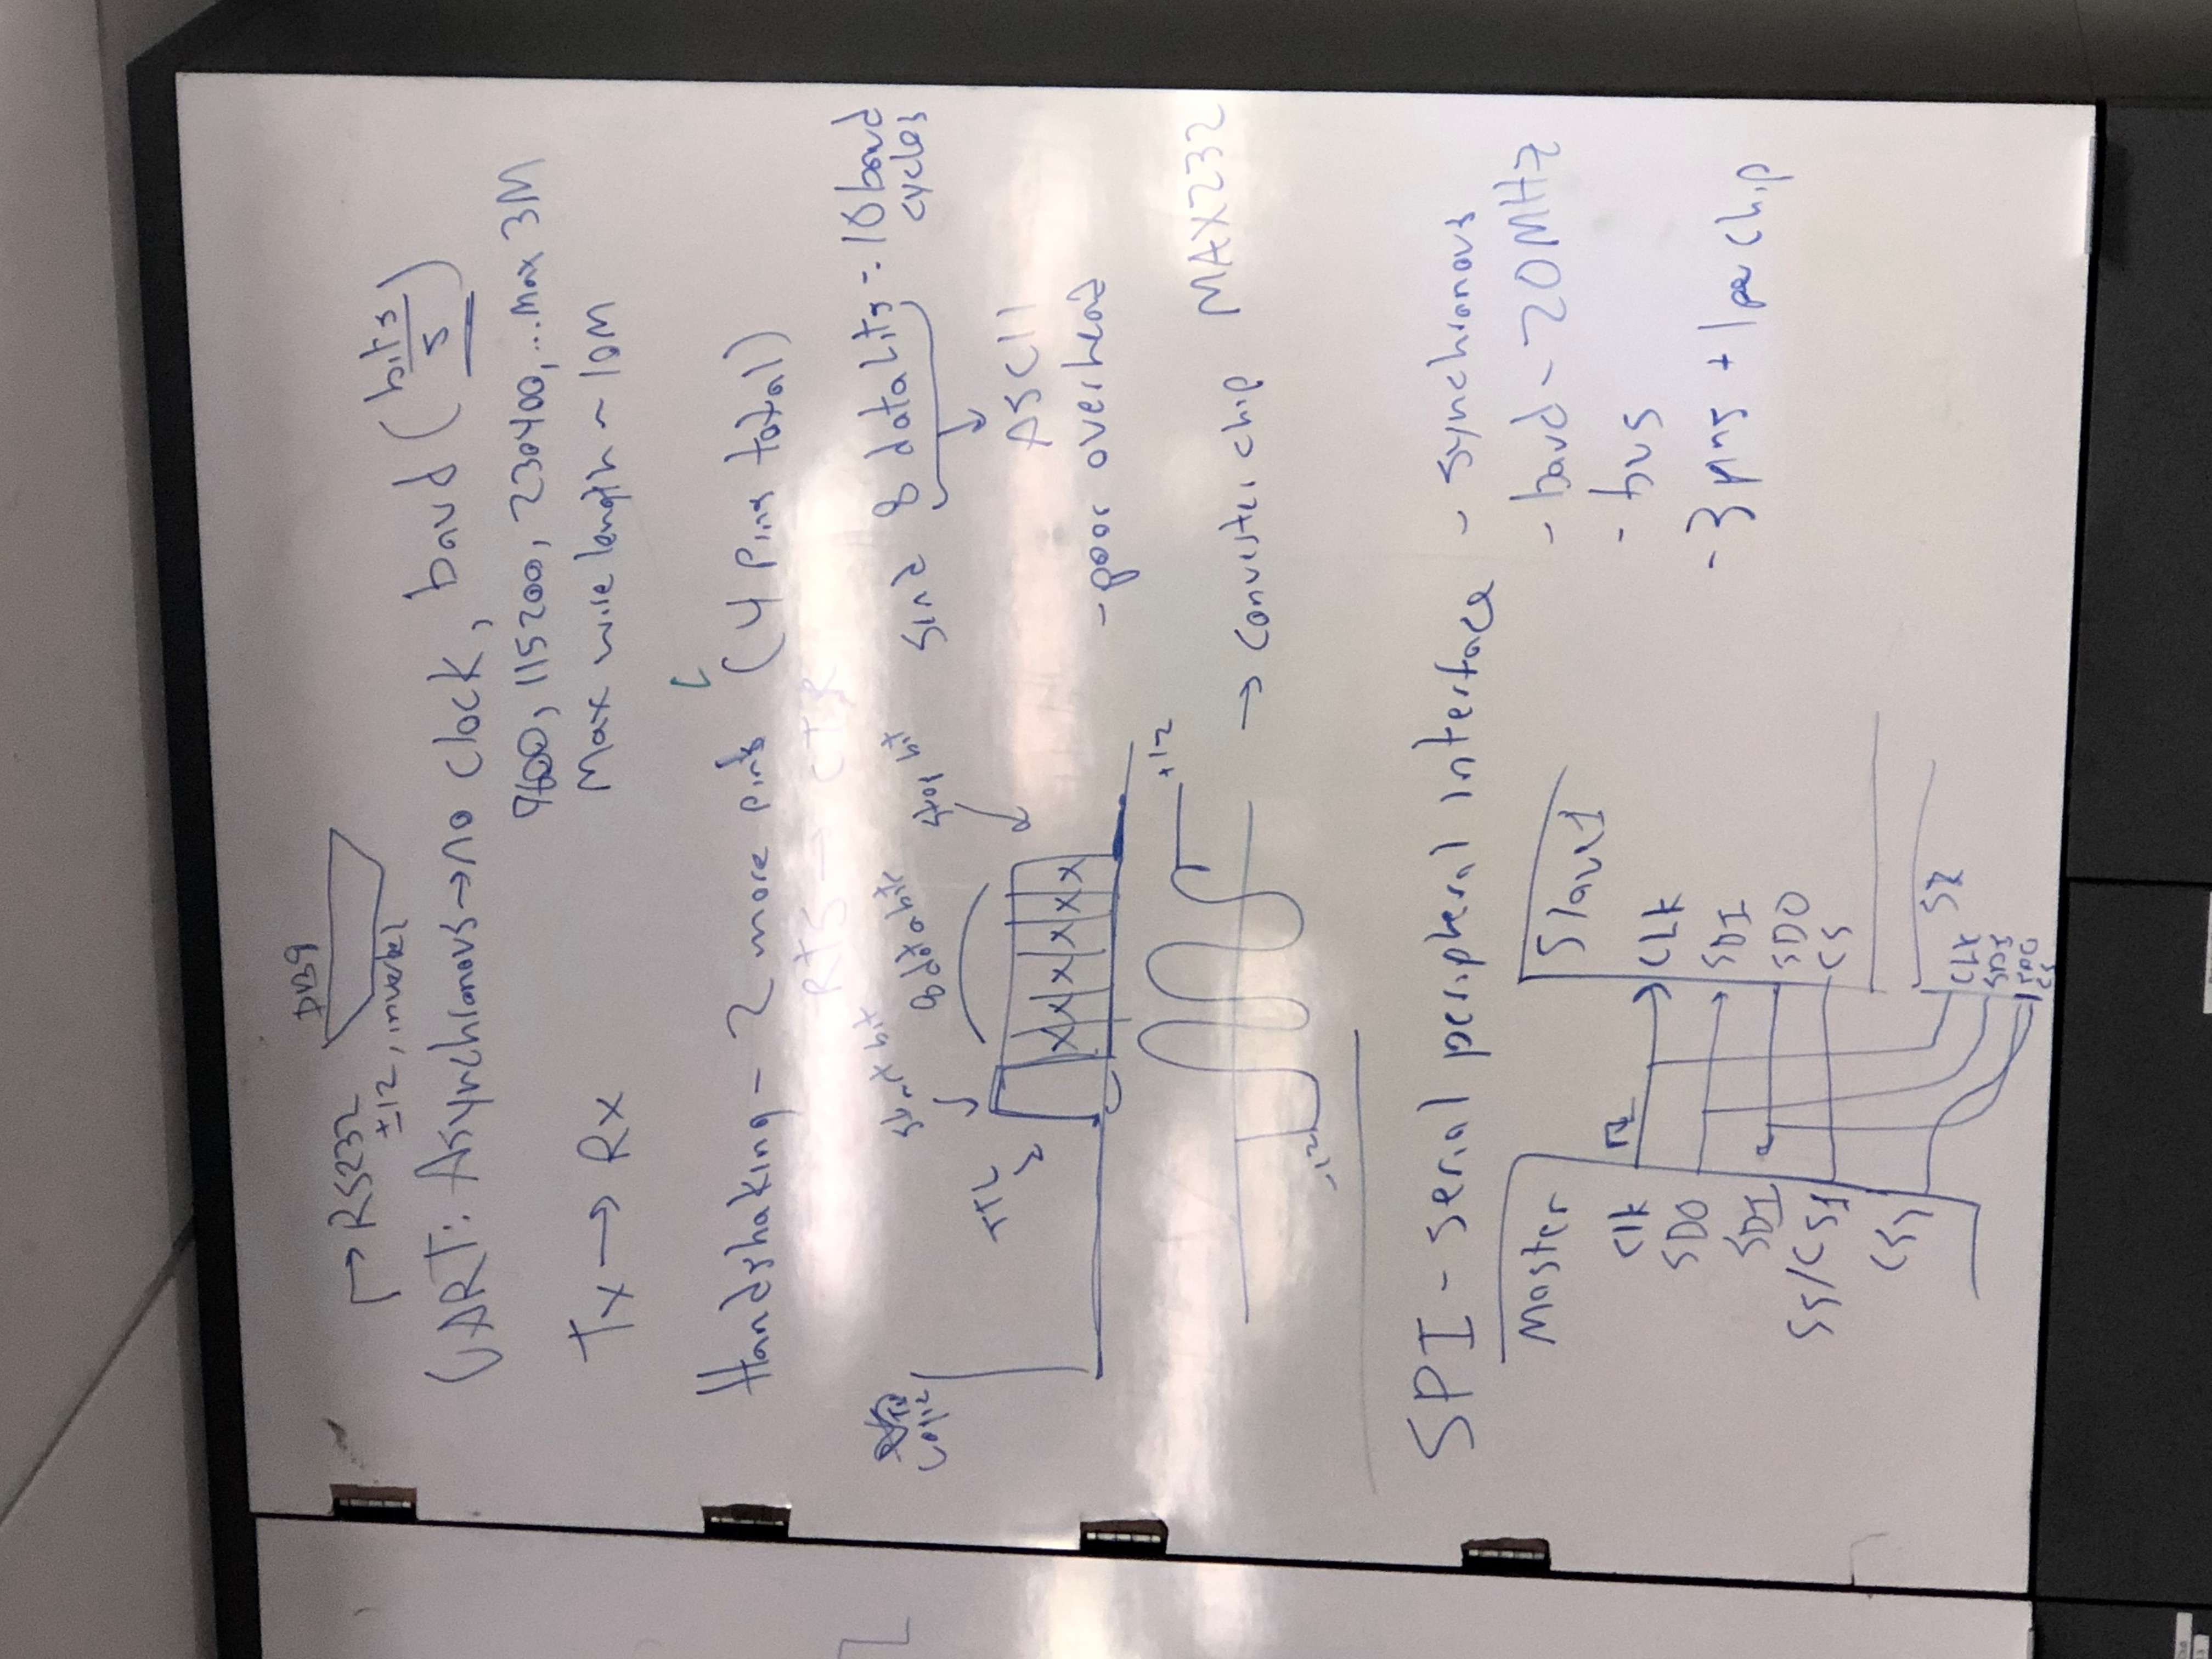 DB9
→ RS232
±12, inverted
UART: Asynchronous → no clock, baud (bits/s)
9600, 115200, 230400, ... Max 3M
Tx → Rx
Max wire length ~ 10M
Handshaking - 2 more pins (4 pins total)
RTS → CTR
Logic
start bit
8 data bits
stop bit
TTL
Send 8 data bits = 10 baud cycles
ASCII
- poor overhead
+12
-12
→ Converter chip MAX232
SPI - serial peripheral interface - synchronous
- baud ~ 20MHz
- bus
- 3 pins + 1 per chip
Master
Clk
SDO
SDI
SS/CS1
CS2
Slave1
CLK
SDI
SDO
CS
S2
CLK
SDI
SDO
CS